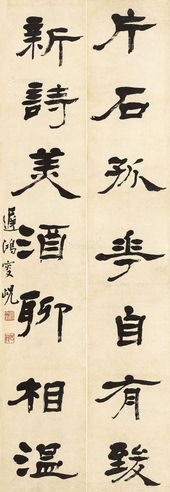 片石孤花自有致
新詩美酒聊相溫
遲鴻雯峴